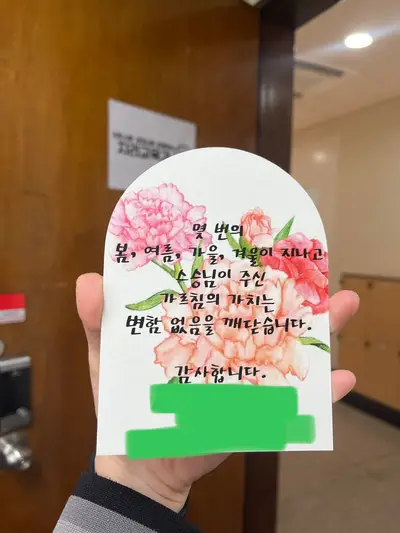 몇 번의
봄, 여름, 가을, 겨울이 지나고
스승님이 주신
가르침의 가치는
변함 없음을 깨닫습니다.
감사합니다.